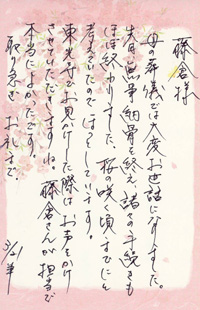 藤倉様
母の葬儀では大変お世話になりました。
先日、無事納骨を終え、諸々の手続きも
ほぼ終わりました。桜の咲く頃までにと
考えていたので ほっとしています。
東光寺でお見かけした際はお声をかけ
させていただきますね。藤倉さんが担当で
本当によかったです。
取り急ぎ お礼まで。
3/21